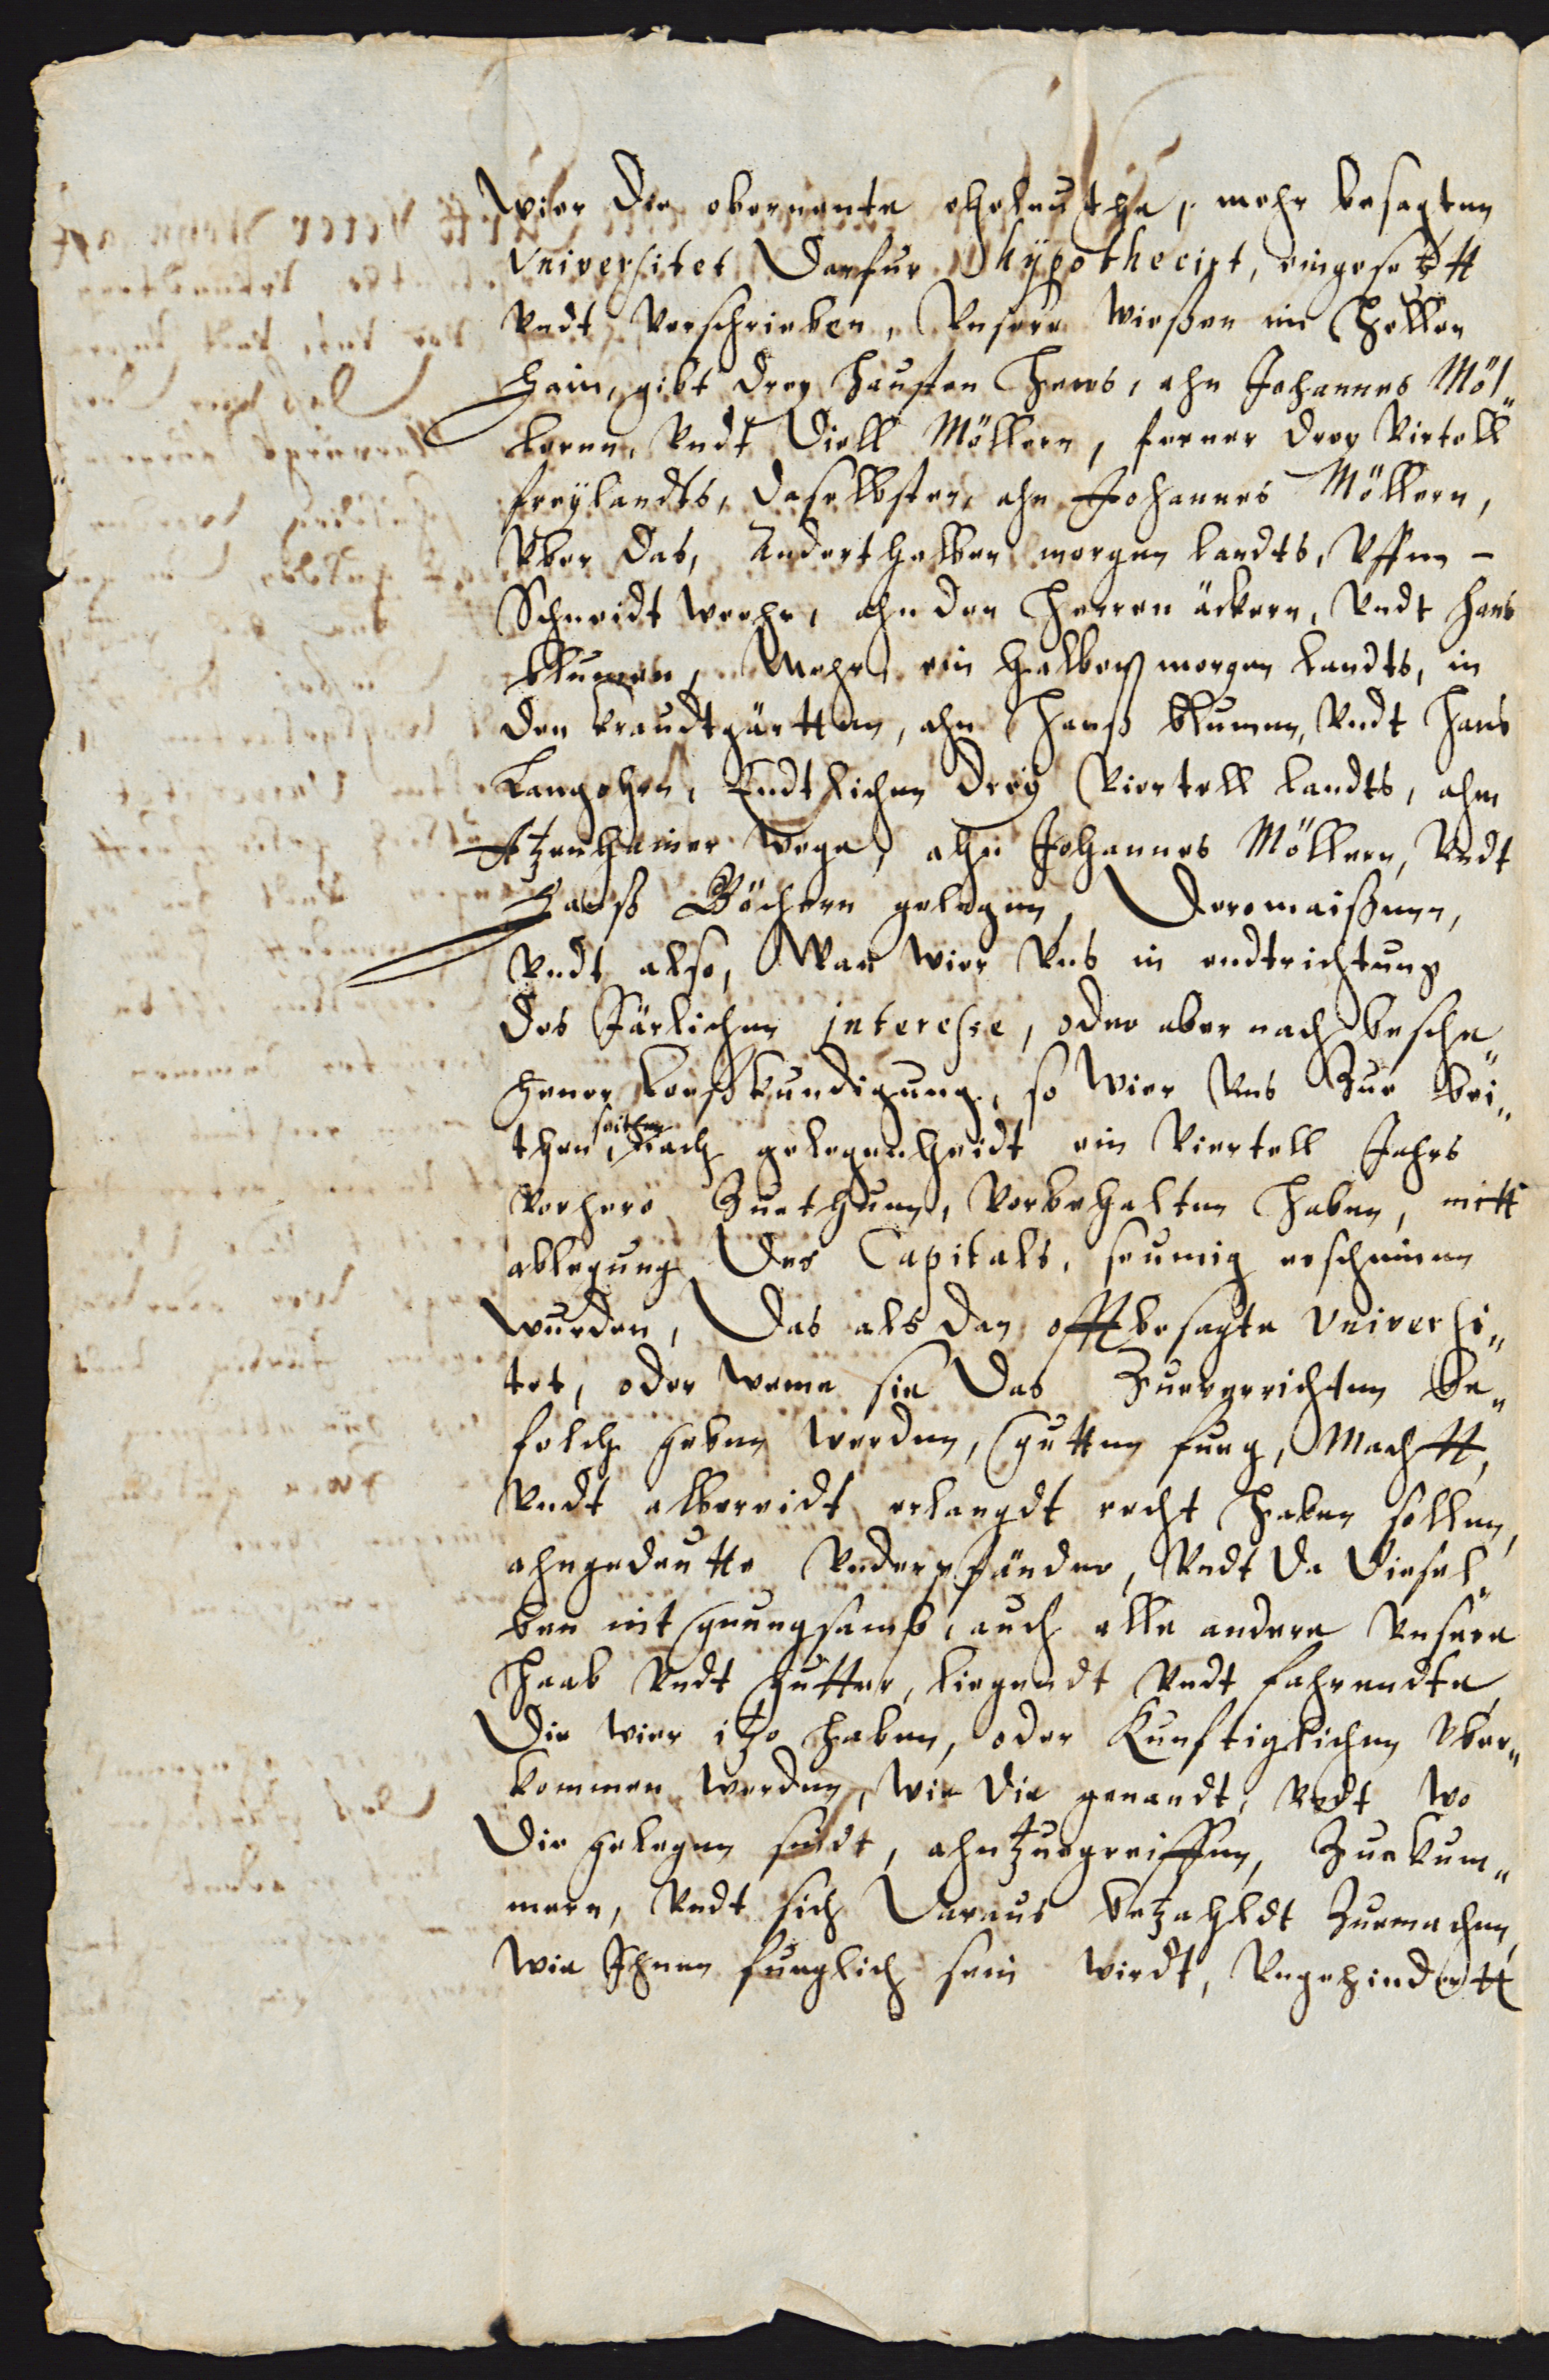 Wier Die obernante eheleuthe, mehr besagten
Universitet Darfur hÿpothecirt, eingesetztt
Undt Verschrieben, Unsere Wießen im Hellen
Hain, gibt Drey Hauffen Hews, ahn Johannes Möl„
lernn, Undt Diell Möllern, ferner Drey Virtell
freÿlandts, Daselbsten, ahn Johannes Möllern,
Uber Das, Anderthalben morgen landts, Uffm –
Schneidt weehe, ahn den Herren äckern, Undt Hans
blumen, Mehr, ein halben morgen landts, in
den kraudtgärtten, ahn Hanß blumen, Undt Hans
Langohen, Endtlichen Dreÿ Viertell landts, ahm
Atzenhainer Wege, ahn Johannes Möllern, Undt
Hanß Böchern gelegen, Deromaißenn,
Undt also, Wan Wier Uns in endtrichtung
Des Järlichen jnteresse, oder aber nach besche„
hener Loeßkundigung, so Wier Uns Zue bei„
then seithen, Nach gelegenheidt ein Viertell Jahrs
vorhero Zuethuen, Vorbehalten Haben, mitt
ablegung Des Capitals, seumig erscheinen
wurden, Das als dan offtbesagte Universi„
tet, oder weme sie Das Zuevorrichten be„
felch geben werden, gutten fueg, Machtt,
Undt albereidt erlangdt recht Haben sollen,
ahngedeutte Underpfänder, Undt Da Diesel„
ben nit gnungsamb, auch alle andere Unsere
Haab Undt gutter, liegendt Undt fahrendte,
Die Wier itzo Haben, oder Kunftiglichen Uber„
kommen werden, Wie Die genandt, Undt Wo
Die gelegen sindt, ahntzuegreiffen, Zuekum„
mern, Undt sich Daraus betzahldt Zuemachen,
Wie Ihnen fueglich sein wirdt, Ungehindertt